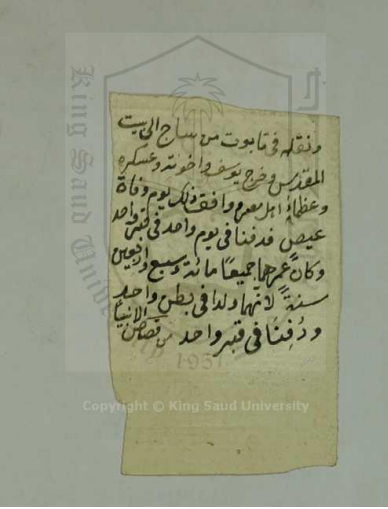 ونقله في تابوت من ساج الى بيت
المقدس وخرج يوسف واخوته وعسكره
وعظماء اهل معه ووافق ذلك يوم وفاة
عيص فدفنا في يوم واحد في قبر واحد
وكان عمرهما جميعًا مائة وسبع واربعين
سنةً لانهما ولدا في بطن واحد
ودُفِنَا في قبر واحد من قصص الانبيا
King Saud University
1957
Copyright © King Saud University